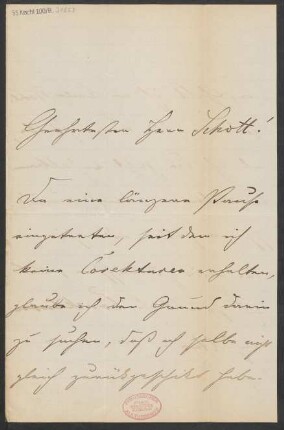 Geehrtester Herr Schott!
Da eine längere Pause
eingetreten, seit dem ich
keine Corekturen erhalten,
glaube ich den Grund darin
zu suchen, daß ich selbe nicht
gleich zurückgeschikt habe.